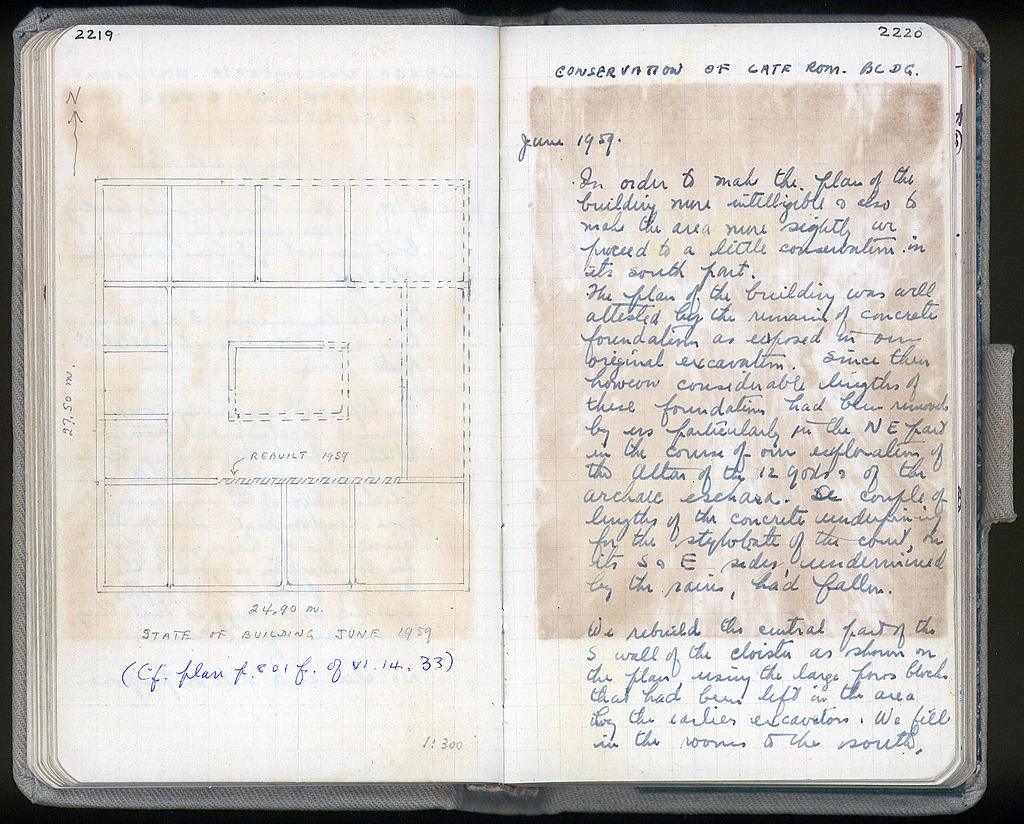 2219
N
27.50 m.
REBUILT 1959
24.90 m.
STATE OF BUILDING JUNE 1959
(Cf. plan p. 801 f. of VI. 14. 33)
1:300
2220
CONSERVATION OF LATE ROM. BLDG.
June 1959.
In order to make the plan of the
building more intelligible & also to
make the area more sightly we
proceed to a little conservation in
its south part.
The plan of the building was well
attested by the remains of concrete
foundations as exposed in our
original excavation. Since then
however considerable lengths of
these foundations had been removed
by us particularly in the NE part
in the course of our exploration of
the Altar of the 12 gods & of the
archaic eschara. couple of
lengths of the concrete underpinning
for the stylobate of the court, on
its S & E sides, undermined
by the rains, had fallen.
We rebuild the central part of the
S wall of the cloister as shown on
the plan, using the large poros blocks
that had been left in the area
by the earlier excavators. We fill
in the rooms to the south,